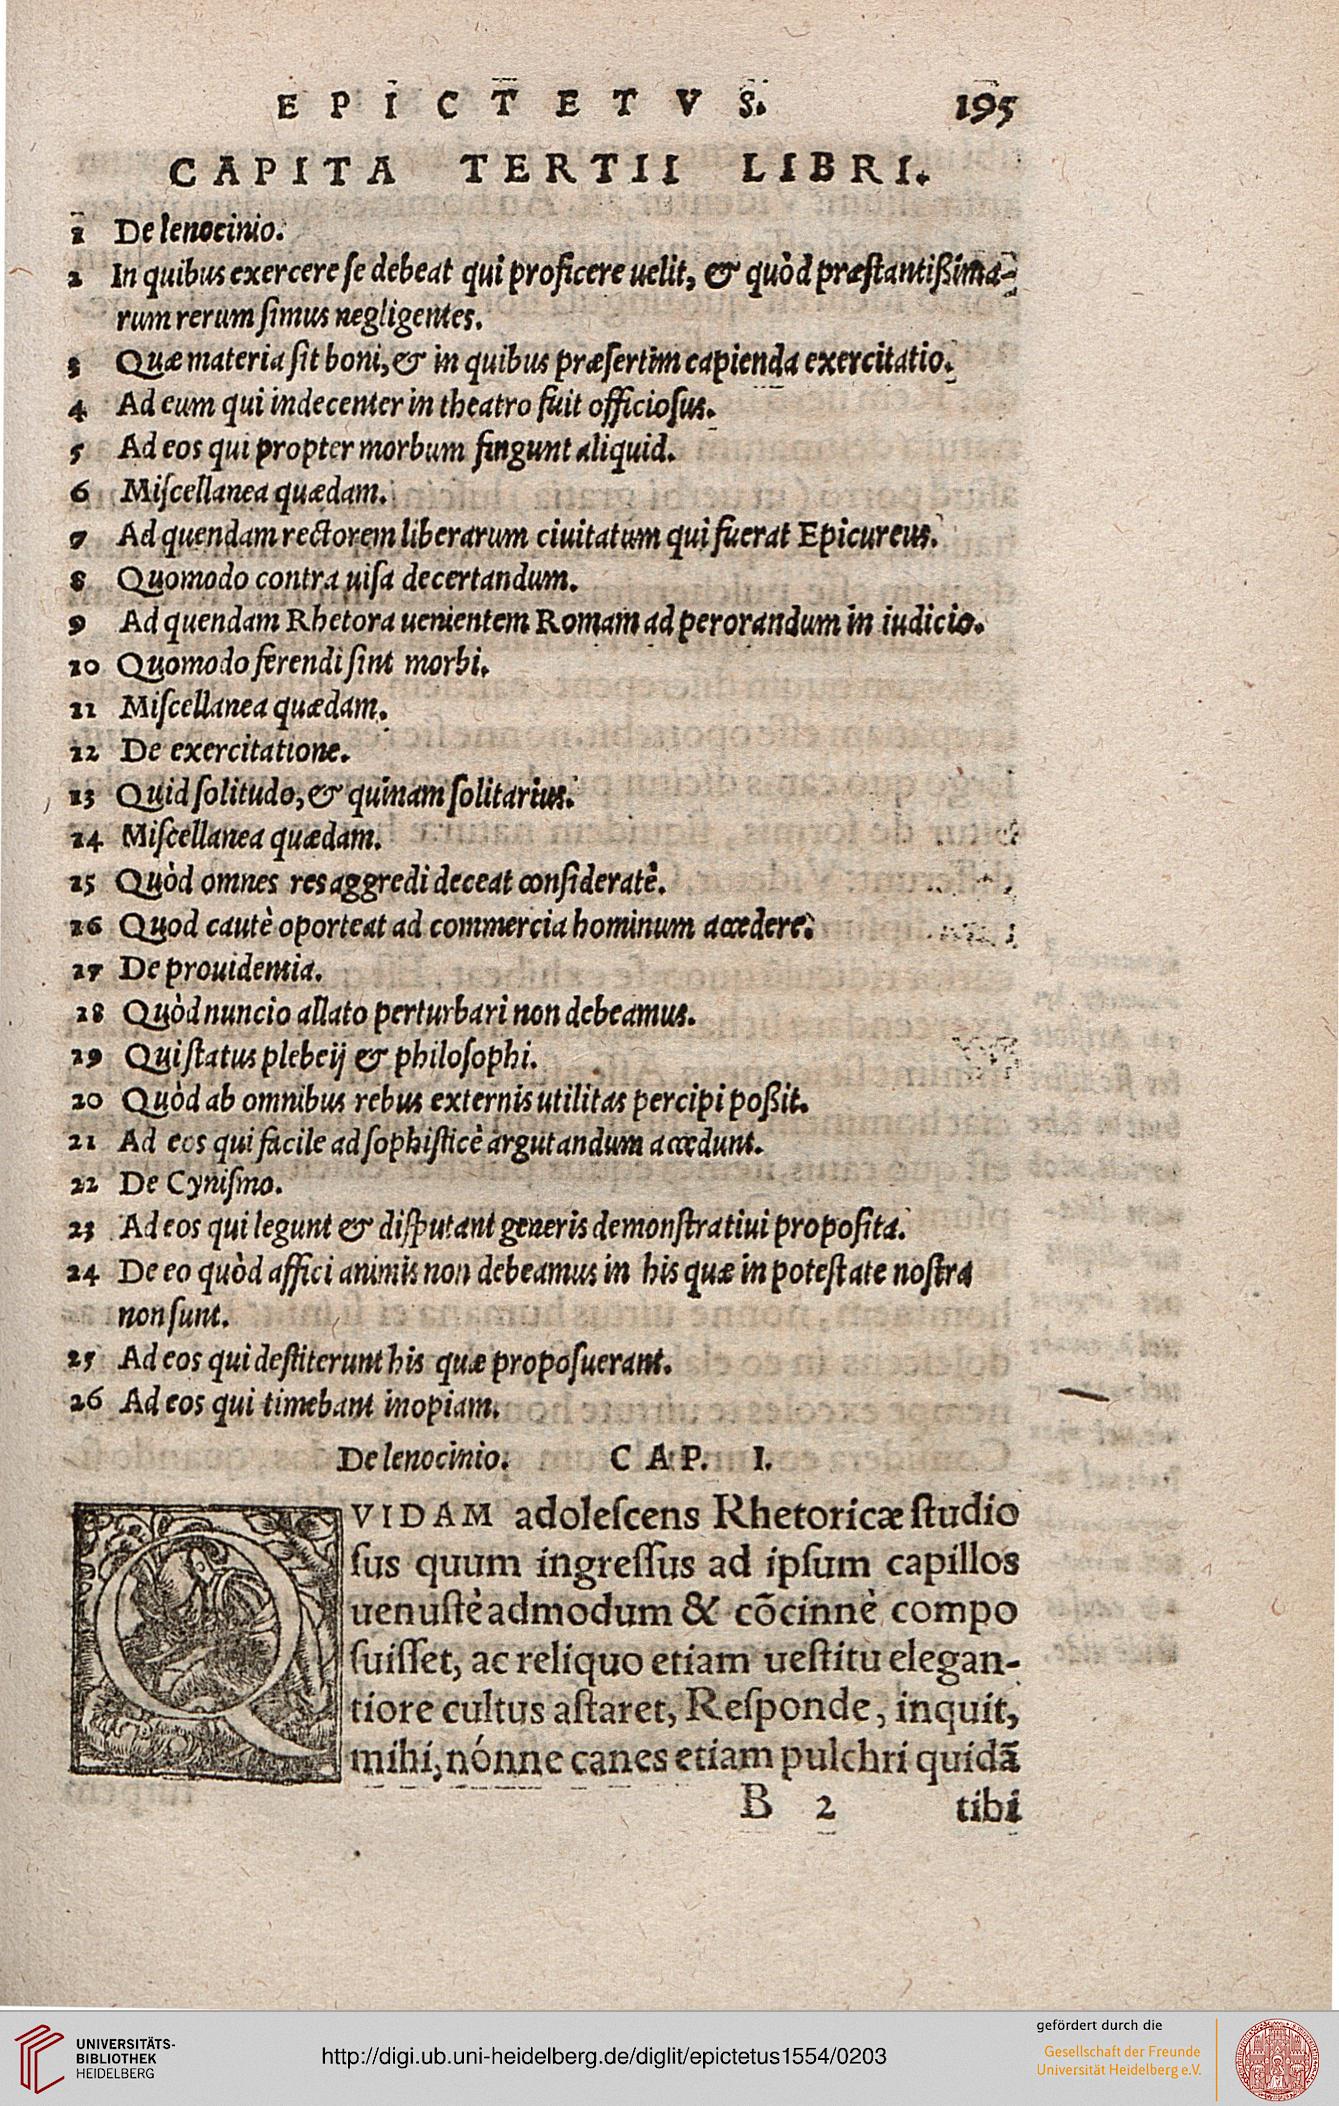 EPICTETVS. 195
CAPITA TERTII LIBRI.
1 De lenocinio.
2 In quibus exercere se debeat qui proficere uelit, & quòd præstantißima-
rum rerum simus negligentes.
3 Quæ materia sit boni, & in quibus præsertim capienda exercitatio.
4 Ad eum qui indecenter in theatro fuit officiosus.
5 Ad eos qui propter morbum fingunt aliquid.
6 Miscellanea quædam.
7 Ad quendam rectorem liberarum ciuitatum qui fuerat Epicureus.
8 Quomodo contra uisa decertandum.
9 Ad quendam Rhetora uenientem Romam ad perorandum in iudicio.
10 Quomodo ferendi sint morbi.
11 Miscellanea quædam.
12 De exercitatione.
13 Quid solitudo, & quinam solitarius.
14 Miscellanea quædam.
15 Quòd omnes res aggredi deceat consideratè.
16 Quod cautè oporteat ad commercia hominum accedere.
17 De prouidentia.
18 Quòd nuncio allato perturbari non debeamus.
19 Qui status plebeij & philosophi.
20 Quòd ab omnibus rebus externis utilitas percipi poßit.
21 Ad eos qui facile ad sophisticè argutandum accedunt.
22 De Cynismo.
23 Ad eos qui legunt & disputant generis demonstratiui proposita.
24 De eo quòd affici animis non debeamus in his quæ in potestate nostra
non sunt.
25 Ad eos qui destiterunt his quæ proposuerant.
26 Ad eos qui timebant inopiam.
De lenocinio. CAP. I.
QVIDAM adolescens Rhetoricæ studio
sus quum ingressus ad ipsum capillos
uenustè admodum & cõcinnè compo
suisset, ac reliquo etiam uestitu elegan-
tiore cultus astaret, Responde, inquit,
mihi, nónne canes etiam pulchri quidã
B 2 tibi
UNIVERSITÄTS-
BIBLIOTHEK
HEIDELBERG
http://digi.ub.uni-heidelberg.de/diglit/epictetus1554/0203
gefördert durch die
Gesellschaft der Freunde
Universität Heidelberg e.V.